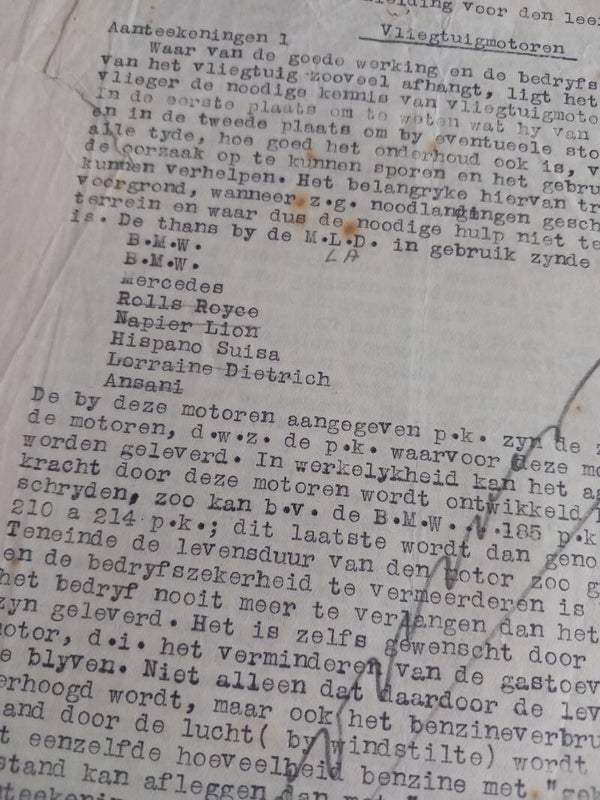 leiding voor den leer
Aanteekeningen 1 Vliegtuigmotoren
Waar van de goede werking en de bedryfs
van het vliegtuig zooveel afhangt, ligt het
vlieger de noodige kennis van vliegtuigmoto
In de eerste plaats om te weten wat hy van
en in de tweede plaats om by eventueele sto
alle tyde, hoe goed het onderhoud ook is, v
de oorzaak op te kunnen sporen en het gebru
kunnen verhelpen. Het belangryke hiervan tr
voorgrond, wanneer z.g. noodlandingen gesch
terrein en waar dus de noodige hulp niet te
is. De thans by de M.L.D. in gebruik zynde
LA
B.M.W.
B.M.W.
Mercedes
Rolls Royce
Napier Lion
Hispano Suisa
Lorraine Dietrich
Ansani
De by deze motoren aangegeven p.k. zyn de
de motoren, d.w.z. de p.k. waarvoor deze mo
worden geleverd. In werkelykheid kan het a
kracht door deze motoren wordt ontwikkeld
schryden, zoo kan b.v. de B.M.W. 185 p.k
210 a 214 p.k.; dit laatste wordt dan geno
Teneinde de levensduur van den motor zoo g
en de bedryfszekerheid te vermeerderen is
het bedryf nooit meer te verlangen dan het
zyn geleverd. Het is zelfs gewenscht door
otor, d.i. het verminderen van de gastoev
e blyven. Niet alleen dat daardoor de lev
erhoogd wordt, maar ook het benzineverbru
and door de lucht( by windstilte) wordt
t eenzelfde hoeveelheid benzine met "gek
stand kan afleggen dan met "
teekening